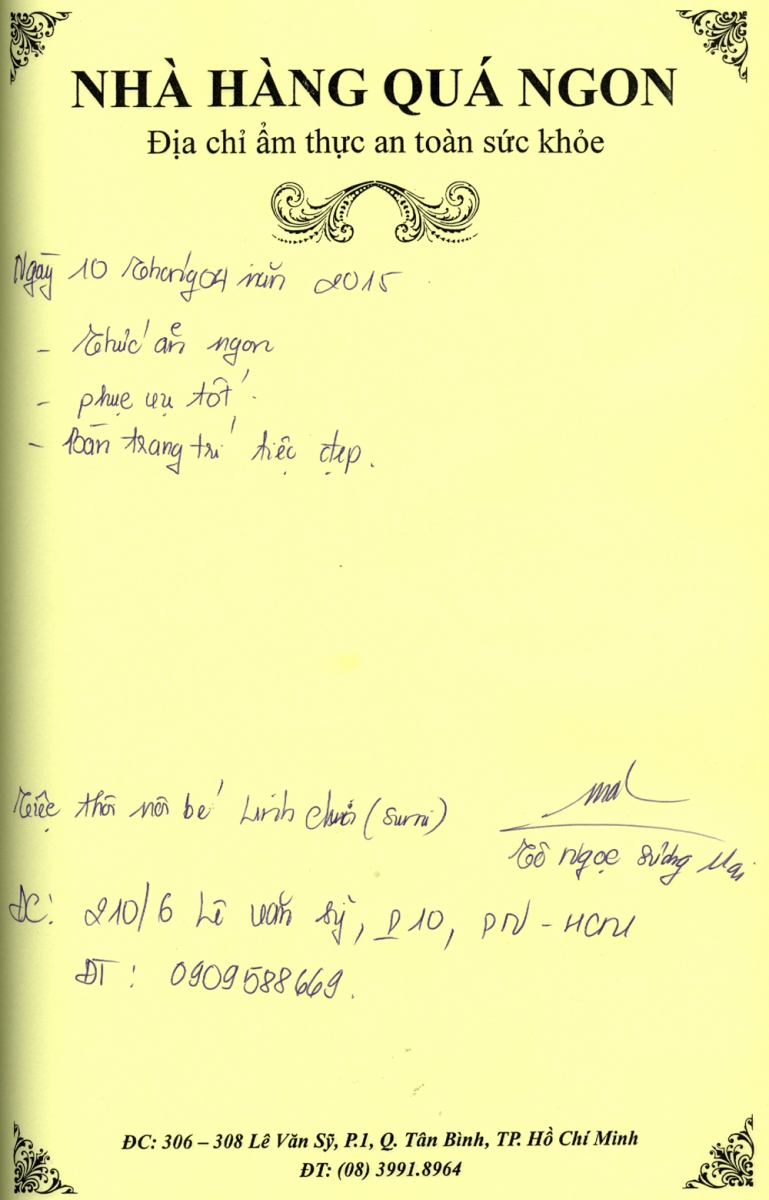 NHÀ HÀNG QUÁ NGON
Địa chỉ ẩm thực an toàn sức khỏe
Ngày 10 tháng 04 năm 2015
- Thức ăn ngon
- phục vụ tốt.
- Bàn trang trí tiệc đẹp.
mai
Tiệc thôi nôi bé Linh (Sumi)
Tô Ngọc Sương Mai
ĐC: 210/6 Lê Văn Sỹ, P10, PN - HCM
ĐT: 0909588669.
ĐC: 306 – 308 Lê Văn Sỹ, P.1, Q. Tân Bình, TP. Hồ Chí Minh
ĐT: (08) 3991.8964